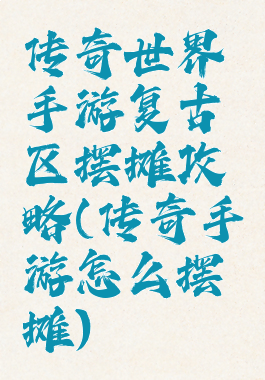 传奇世界
手游复古
区摆摊攻
略(传奇手
游怎么摆
摊)